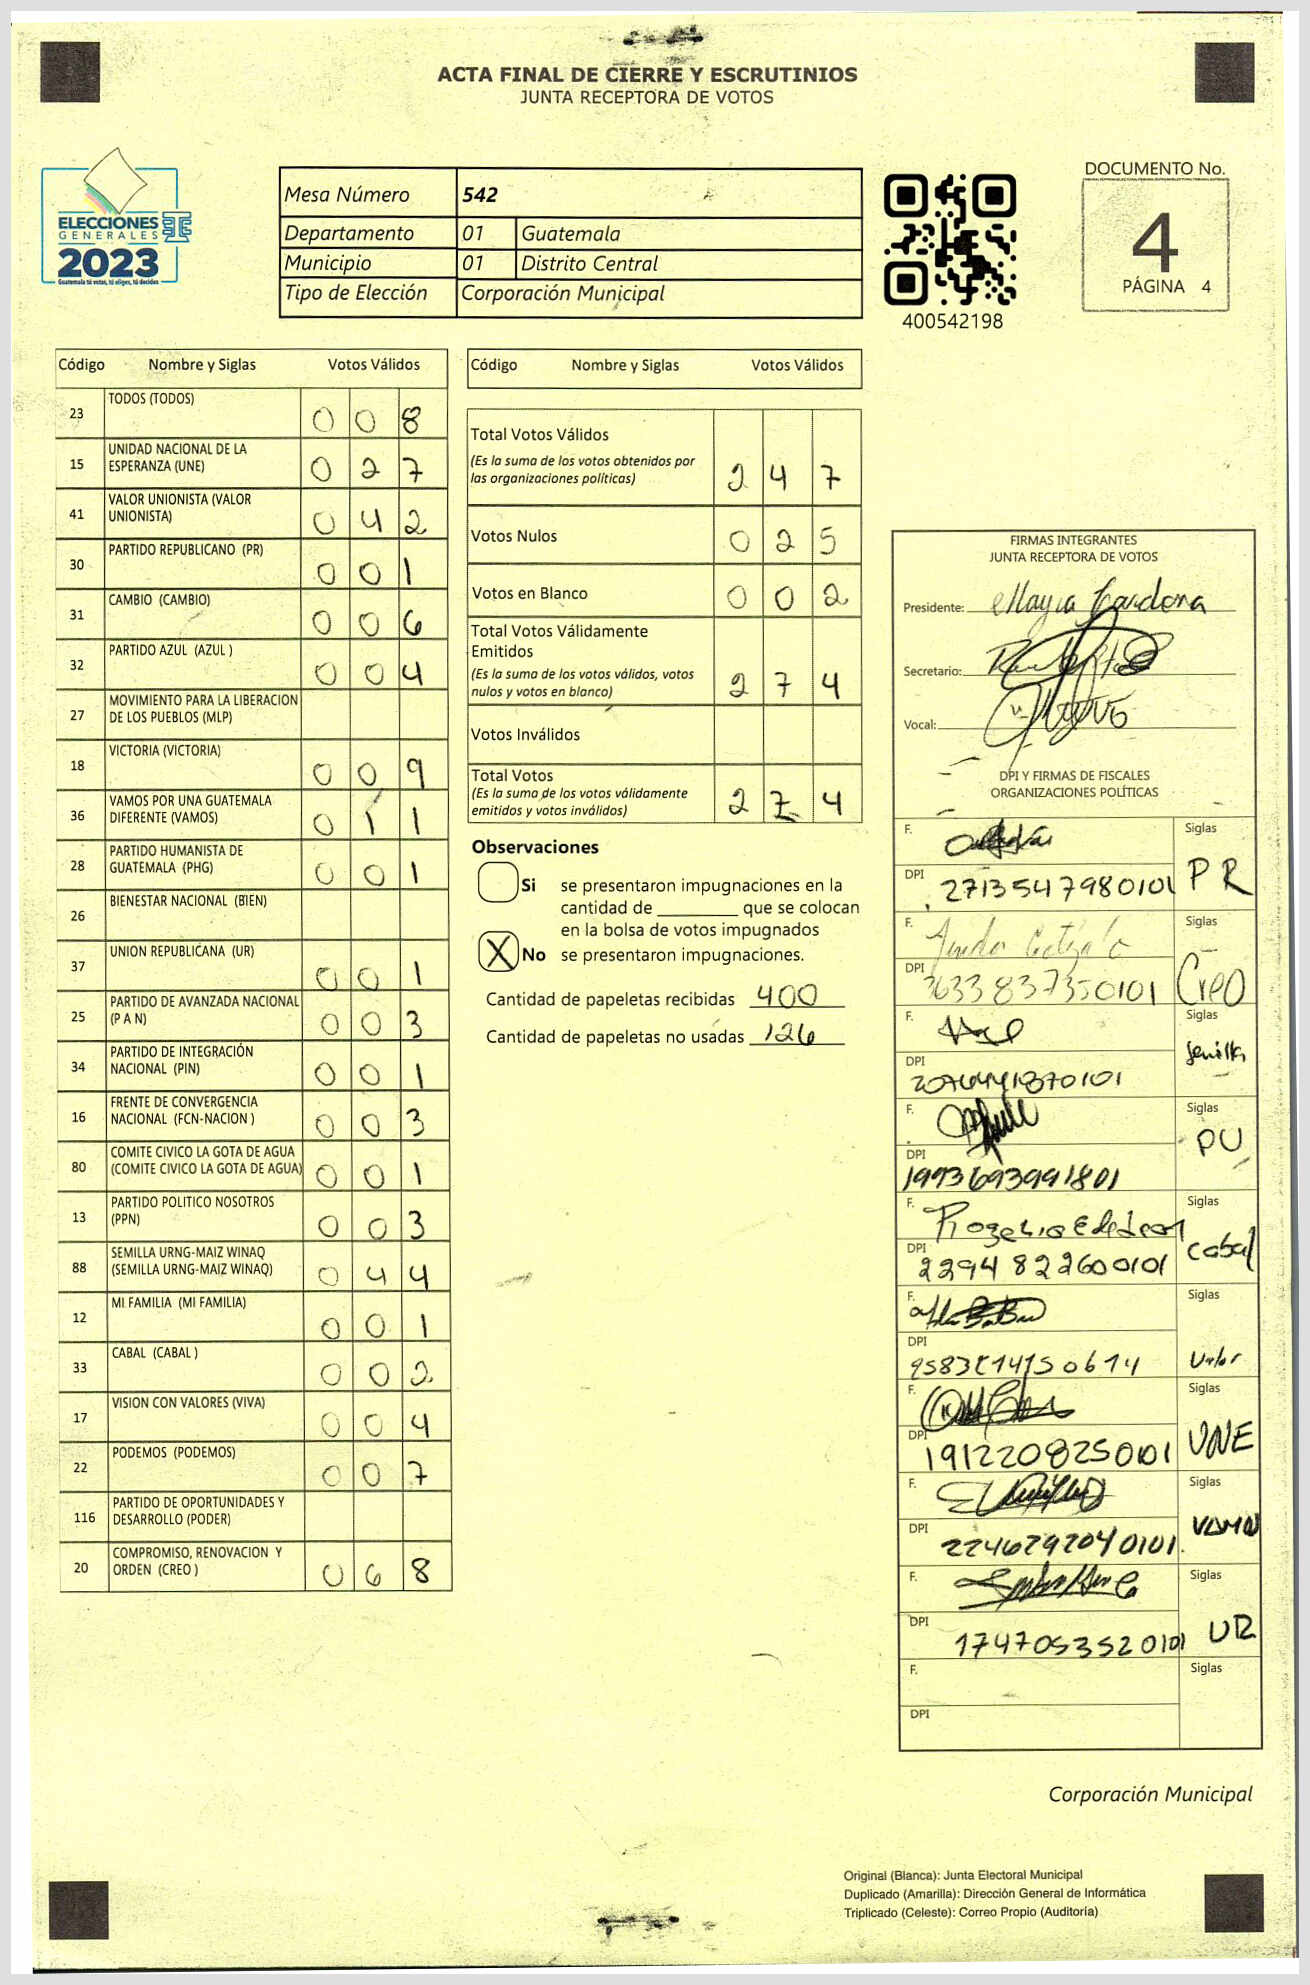 ACTA FINAL DE CIERRE Y ESCRUTINIOS
JUNTA RECEPTORA DE VOTOS
ELECCIONES
GENERALES
2023
Guatemala tú votas, tú eliges, tú decides
Mesa Número 542
Departamento 01 Guatemala
Municipio 01 Distrito Central
Tipo de Elección Corporación Municipal
400542198
DOCUMENTO No.
4
PÁGINA 4
Código Nombre y Siglas Votos Válidos
23 TODOS (TODOS) 0 0 8
15 UNIDAD NACIONAL DE LA ESPERANZA (UNE) 0 2 7
41 VALOR UNIONISTA (VALOR UNIONISTA) 0 4 2
30 PARTIDO REPUBLICANO (PR) 0 0 1
31 CAMBIO (CAMBIO) 0 0 6
32 PARTIDO AZUL (AZUL ) 0 0 4
27 MOVIMIENTO PARA LA LIBERACION DE LOS PUEBLOS (MLP)
18 VICTORIA (VICTORIA) 0 0 9
36 VAMOS POR UNA GUATEMALA DIFERENTE (VAMOS) 0 1 1
28 PARTIDO HUMANISTA DE GUATEMALA (PHG) 0 0 1
26 BIENESTAR NACIONAL (BIEN)
37 UNION REPUBLICANA (UR) 0 0 1
25 PARTIDO DE AVANZADA NACIONAL (P A N) 0 0 3
34 PARTIDO DE INTEGRACIÓN NACIONAL (PIN) 0 0 1
16 FRENTE DE CONVERGENCIA NACIONAL (FCN-NACION ) 0 0 3
80 COMITE CIVICO LA GOTA DE AGUA (COMITE CIVICO LA GOTA DE AGUA) 0 0 1
13 PARTIDO POLITICO NOSOTROS (PPN) 0 0 3
88 SEMILLA URNG-MAIZ WINAQ (SEMILLA URNG-MAIZ WINAQ) 0 4 4
12 MI FAMILIA (MI FAMILIA) 0 0 1
33 CABAL (CABAL ) 0 0 2
17 VISION CON VALORES (VIVA) 0 0 4
22 PODEMOS (PODEMOS) 0 0 7
116 PARTIDO DE OPORTUNIDADES Y DESARROLLO (PODER)
20 COMPROMISO, RENOVACION Y ORDEN (CREO ) 0 6 8
Código Nombre y Siglas Votos Válidos
Total Votos Válidos 2 4 7
(Es la suma de los votos obtenidos por
las organizaciones políticas)
Votos Nulos 0 2 5
Votos en Blanco 0 0 2
Total Votos Válidamente
Emitidos 2 7 4
(Es la suma de los votos válidos, votos
nulos y votos en blanco)
Votos Inválidos
Total Votos 2 7 4
(Es la suma de los votos válidamente
emitidos y votos inválidos)
Observaciones
Si se presentaron impugnaciones en la
cantidad de ________ que se colocan
en la bolsa de votos impugnados
X No se presentaron impugnaciones.
Cantidad de papeletas recibidas 400
Cantidad de papeletas no usadas 126
FIRMAS INTEGRANTES
JUNTA RECEPTORA DE VOTOS
Presidente: Mayra Cardona
Secretario:
Vocal:
DPI Y FIRMAS DE FISCALES
ORGANIZACIONES POLÍTICAS
F. Siglas
DPI 2713547980101 PR
F. Siglas
DPI 3633837350101 Creo
F. Siglas
DPI Semilla
F. Siglas
DPI 1993693991801 PU
F. Siglas
DPI 2294822600101 Cabal
F. Siglas
DPI Valor
F. Siglas
DPI 1912208250101 UNE
F. Siglas
DPI 2246292040101
F. Siglas
DPI 1747053520101 UR
F. Siglas
DPI
Corporación Municipal
Original (Blanca): Junta Electoral Municipal
Duplicado (Amarilla): Dirección General de Informática
Triplicado (Celeste): Correo Propio (Auditoría)